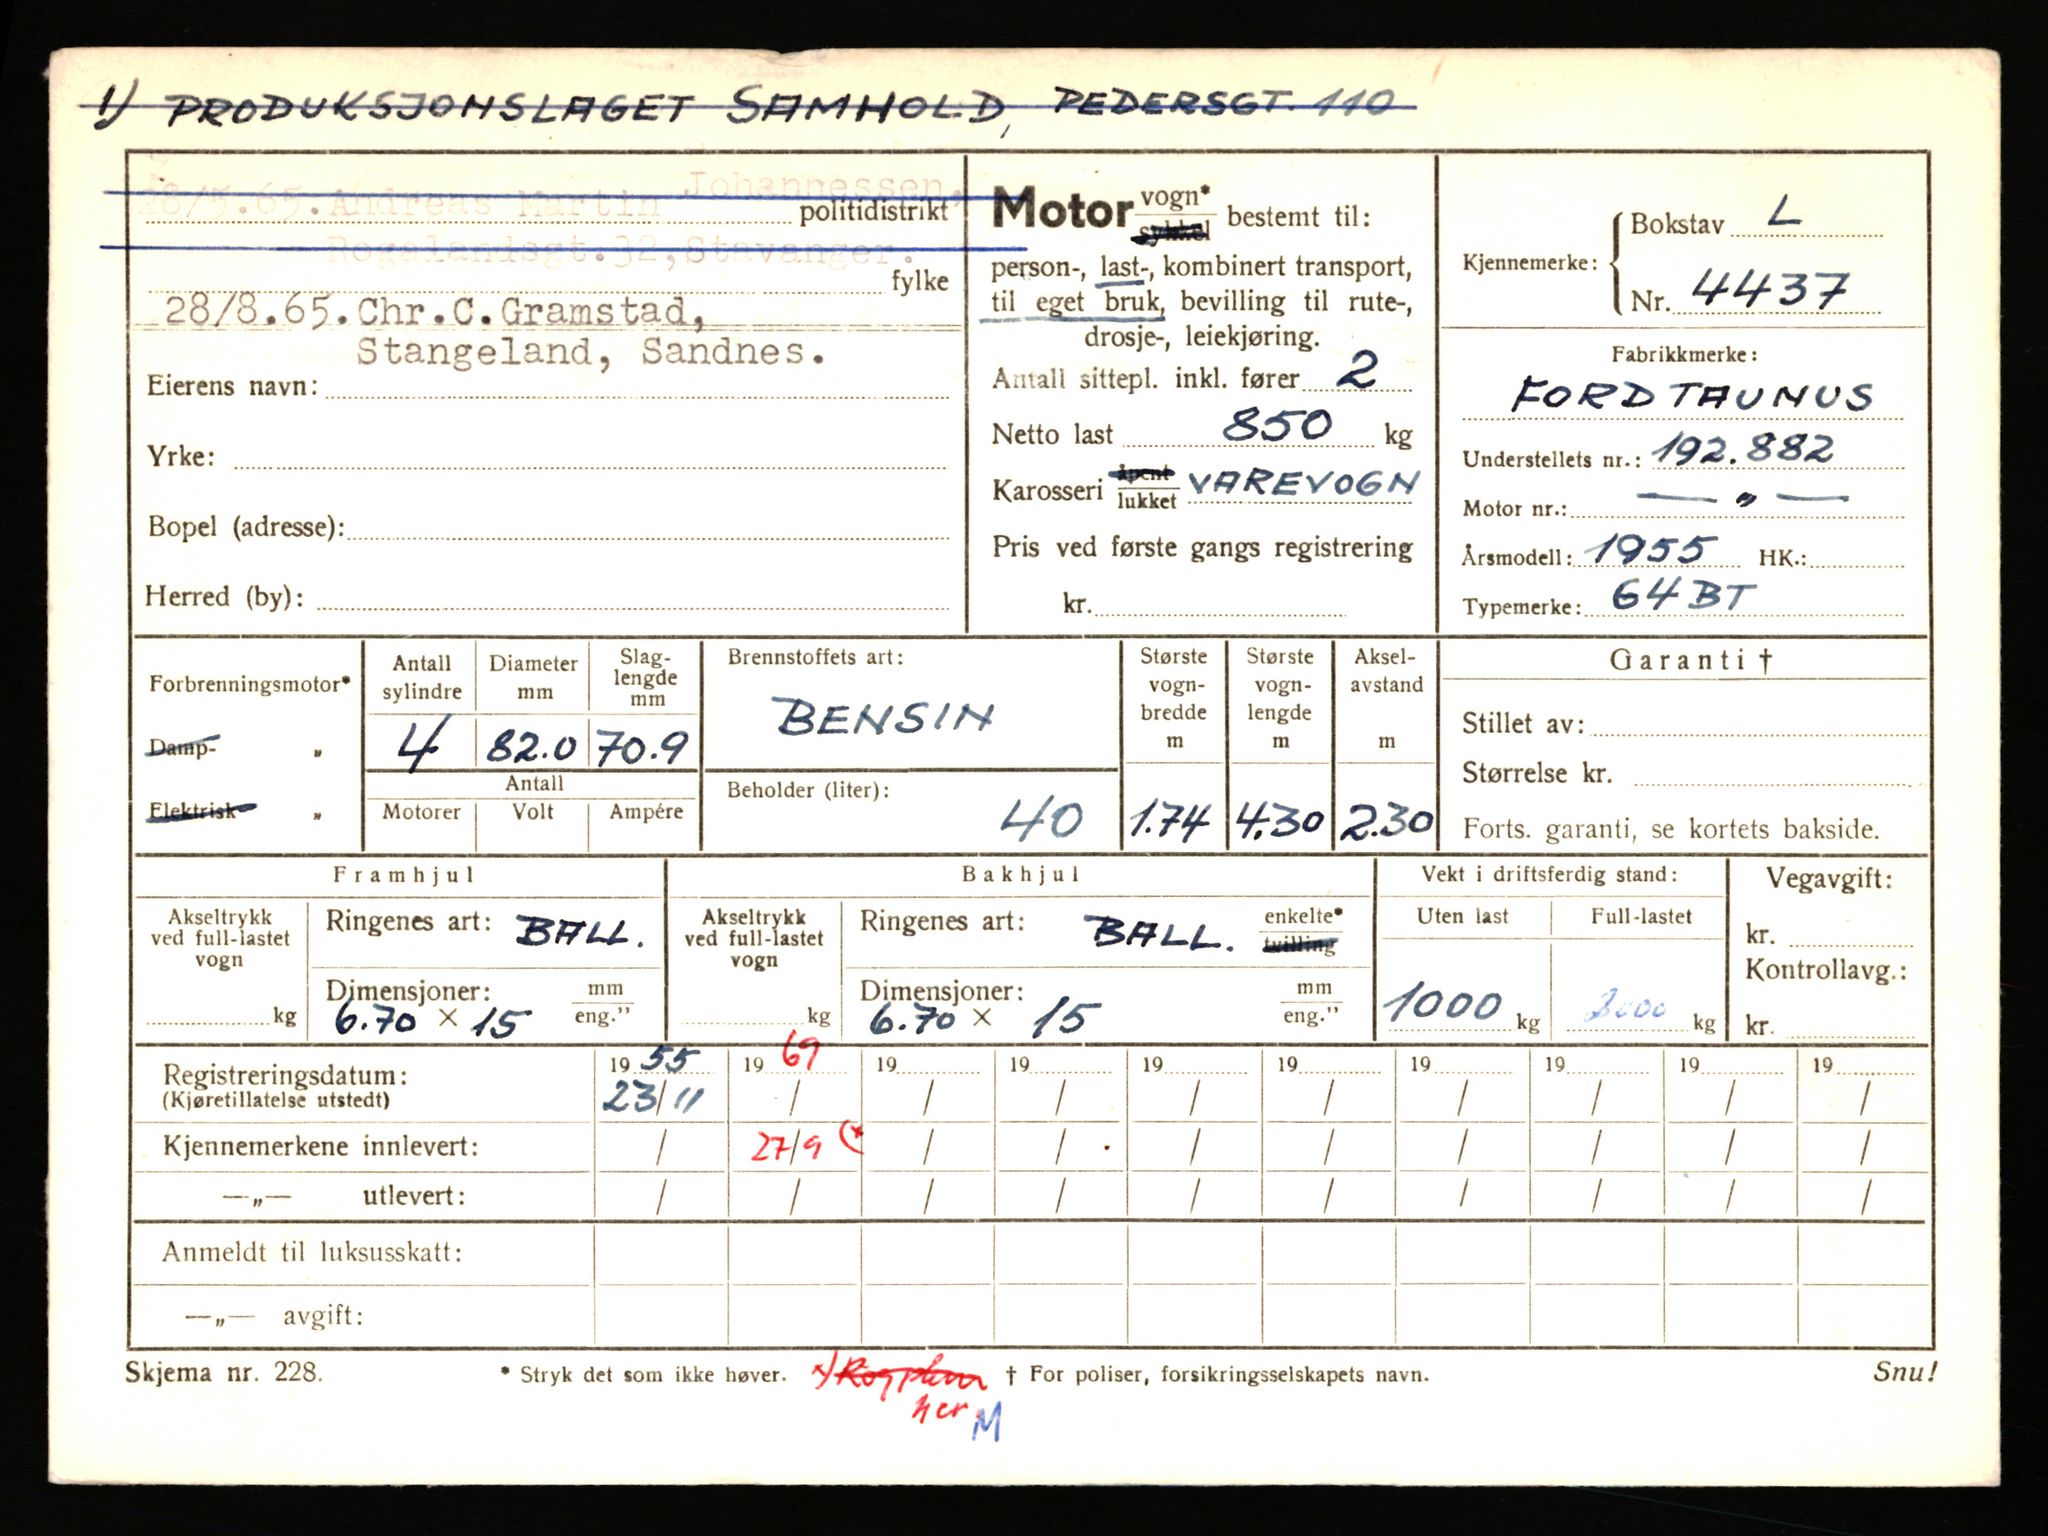 1) PRODUKSJONSLAGET SAMHOLD, PEDERSGT. 110
28/5.65. Andreas Martin Johannessen,
politidistrikt
Rogalandsgt.32,Stavanger.
fylke
28/8.65.Chr.C.Gramstad,
Stangeland, Sandnes.
Eierens navn:
Yrke:
Bopel (adresse):
Herred (by):
Motor vogn* sykkel bestemt til:
person-, last-, kombinert transport,
til eget bruk, bevilling til rute-,
drosje-, leiekjøring.
Antall sittepl. inkl. fører 2
Netto last 850 kg
Karosseri åpent lukket VAREVOGN
Pris ved første gangs registrering
kr.
Kjennemerke: Bokstav L
Nr. 4437
Fabrikkmerke:
FORD TAUNUS
Understellets nr.: 192.882
Motor nr.: — „ —
Årsmodell: 1955 HK.:
Typemerke: 64 BT
Forbrenningsmotor*
Damp- „
Elektrisk „
Antall sylindre 4
Diameter mm 82.0
Slag-lengde mm 70.9
Antall
Motorer Volt Ampére
Brennstoffets art:
BENSIN
Beholder (liter):
40
Største vogn-bredde m 1.74
Største vogn-lengde m 4.30
Aksel-avstand m 2.30
Garanti †
Stillet av:
Størrelse kr.
Forts. garanti, se kortets bakside.
Framhjul
Akseltrykk ved full-lastet vogn kg
Ringenes art: BALL.
Dimensjoner: mm eng.”
6.70 × 15
Bakhjul
Akseltrykk ved full-lastet vogn kg
Ringenes art: BALL. enkelte* tvilling
Dimensjoner: mm eng.”
6.70 × 15
Vekt i driftsferdig stand:
Uten last Full-lastet
1000 kg 2000 kg
Vegavgift:
kr.
Kontrollavg.:
kr.
19 55 19 69 19 19 19 19 19 19 19 19
Registreringsdatum: 23/11 / / / / / / / / /
(Kjøretillatelse utstedt)
Kjennemerkene innlevert: / 27/9 (x / / / / / / / /
—„— utlevert: / / / / / / / / / /
Anmeldt til luksusskatt:
—„— avgift:
Skjema nr. 228. * Stryk det som ikke høver. x) † For poliser, forsikringsselskapets navn. Snu!
her M